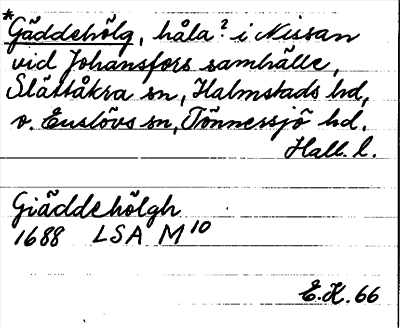 *Gäddehölg, håla? i Nissan
vid Johansfors samhälle,
Slättåkra sn, Halmstads hd,
o. Enslövs sn, Tönnersjö hd.
Hall. l.
Giäddehölgh
1688 LSA M10
E.K. 66